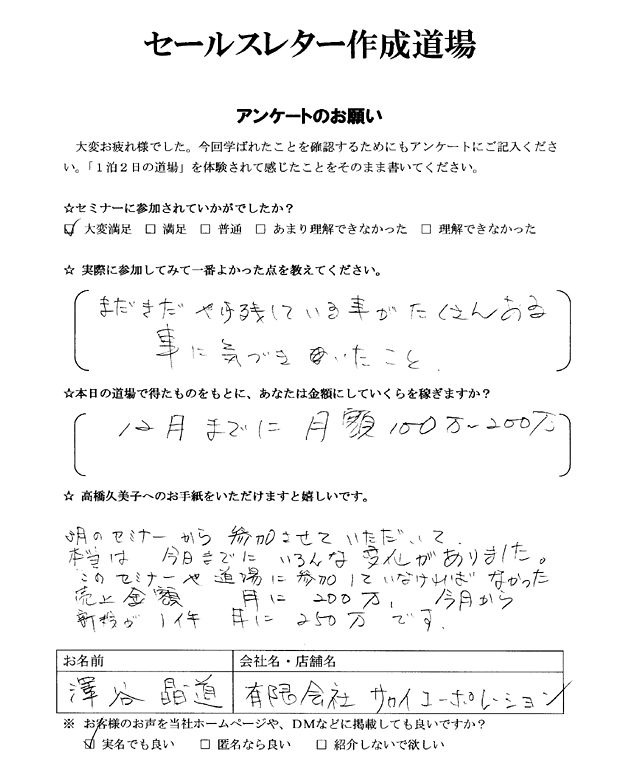 セールスレター作成道場
アンケートのお願い
大変お疲れ様でした。今回学ばれたことを確認するためにもアンケートにご記入くださ
い。「1泊2日の道場」を体験されて感じたことをそのまま書いてください。
☆セミナーに参加されていかがでしたか？
☑ 大変満足 □ 満足 □ 普通 □ あまり理解できなかった □ 理解できなかった
☆ 実際に参加してみて一番よかった点を教えてください。
まだまだやり残している事がたくさんある
事に気づきいたこと.
☆本日の道場で得たものをもとに、あなたは金額にしていくらを稼ぎますか？
12月までに 月額100万～200万
☆ 高橋久美子へのお手紙をいただけますと嬉しいです。
月のセミナーから参加させていただいて.
本当は 今日までに いろんな変化がありました。
このセミナーや道場に参加していなければなかった
売上金額 月に 200万, 今月から
新 が 1件 月に 250万 です.
お名前 会社名・店舗名
澤谷 晶道 有限会社 サカイコーポレーション
※ お客様のお声を当社ホームページや、DMなどに掲載しても良いですか？
☑ 実名でも良い □ 匿名なら良い □ 紹介しないで欲しい